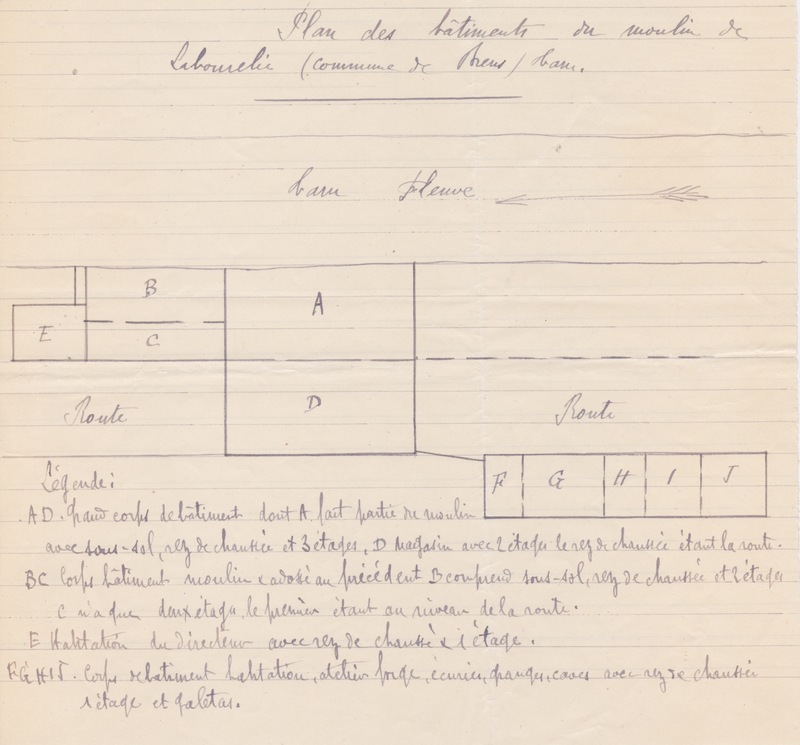 Plan des bâtiments du moulin de
Labourelie (commune de Brens) Tarn.
Tarn Fleuve
B
A
E
C
D
Route
Route
F G H I J
Légende:
AD. Grand corps de bâtiment dont A fait partie du moulin
avec sous-sol, rez de chaussée et 3 étages, D Magasin avec 2 étages le rez de chaussée étant la route.
BC Corps bâtiment moulin & adossé au précédent B comprend sous-sol, rez de chaussée et 2 étages
C n'a que deux étages, le premier étant au niveau de la route.
E Habitation du directeur avec rez de chaussé & 1 étage.
FGHIJ. Corps de bâtiment habitation, atelier forge, écuries, granges, caves avec rez de chaussée
1 étage et galetas.